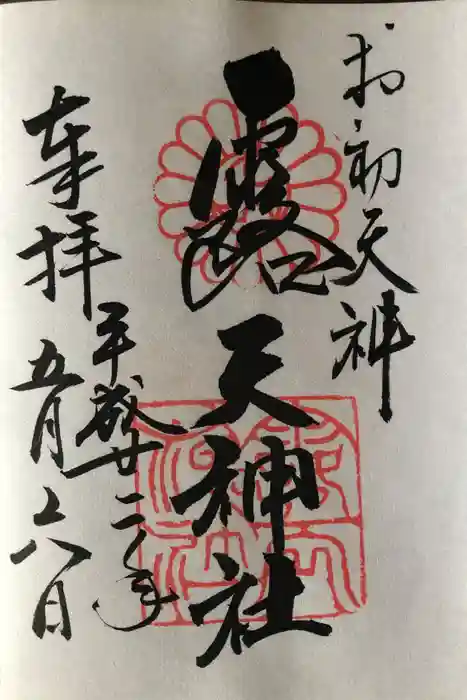 お初天神
露天神社
奉拝
平成廿二年
五月六日
露天神社